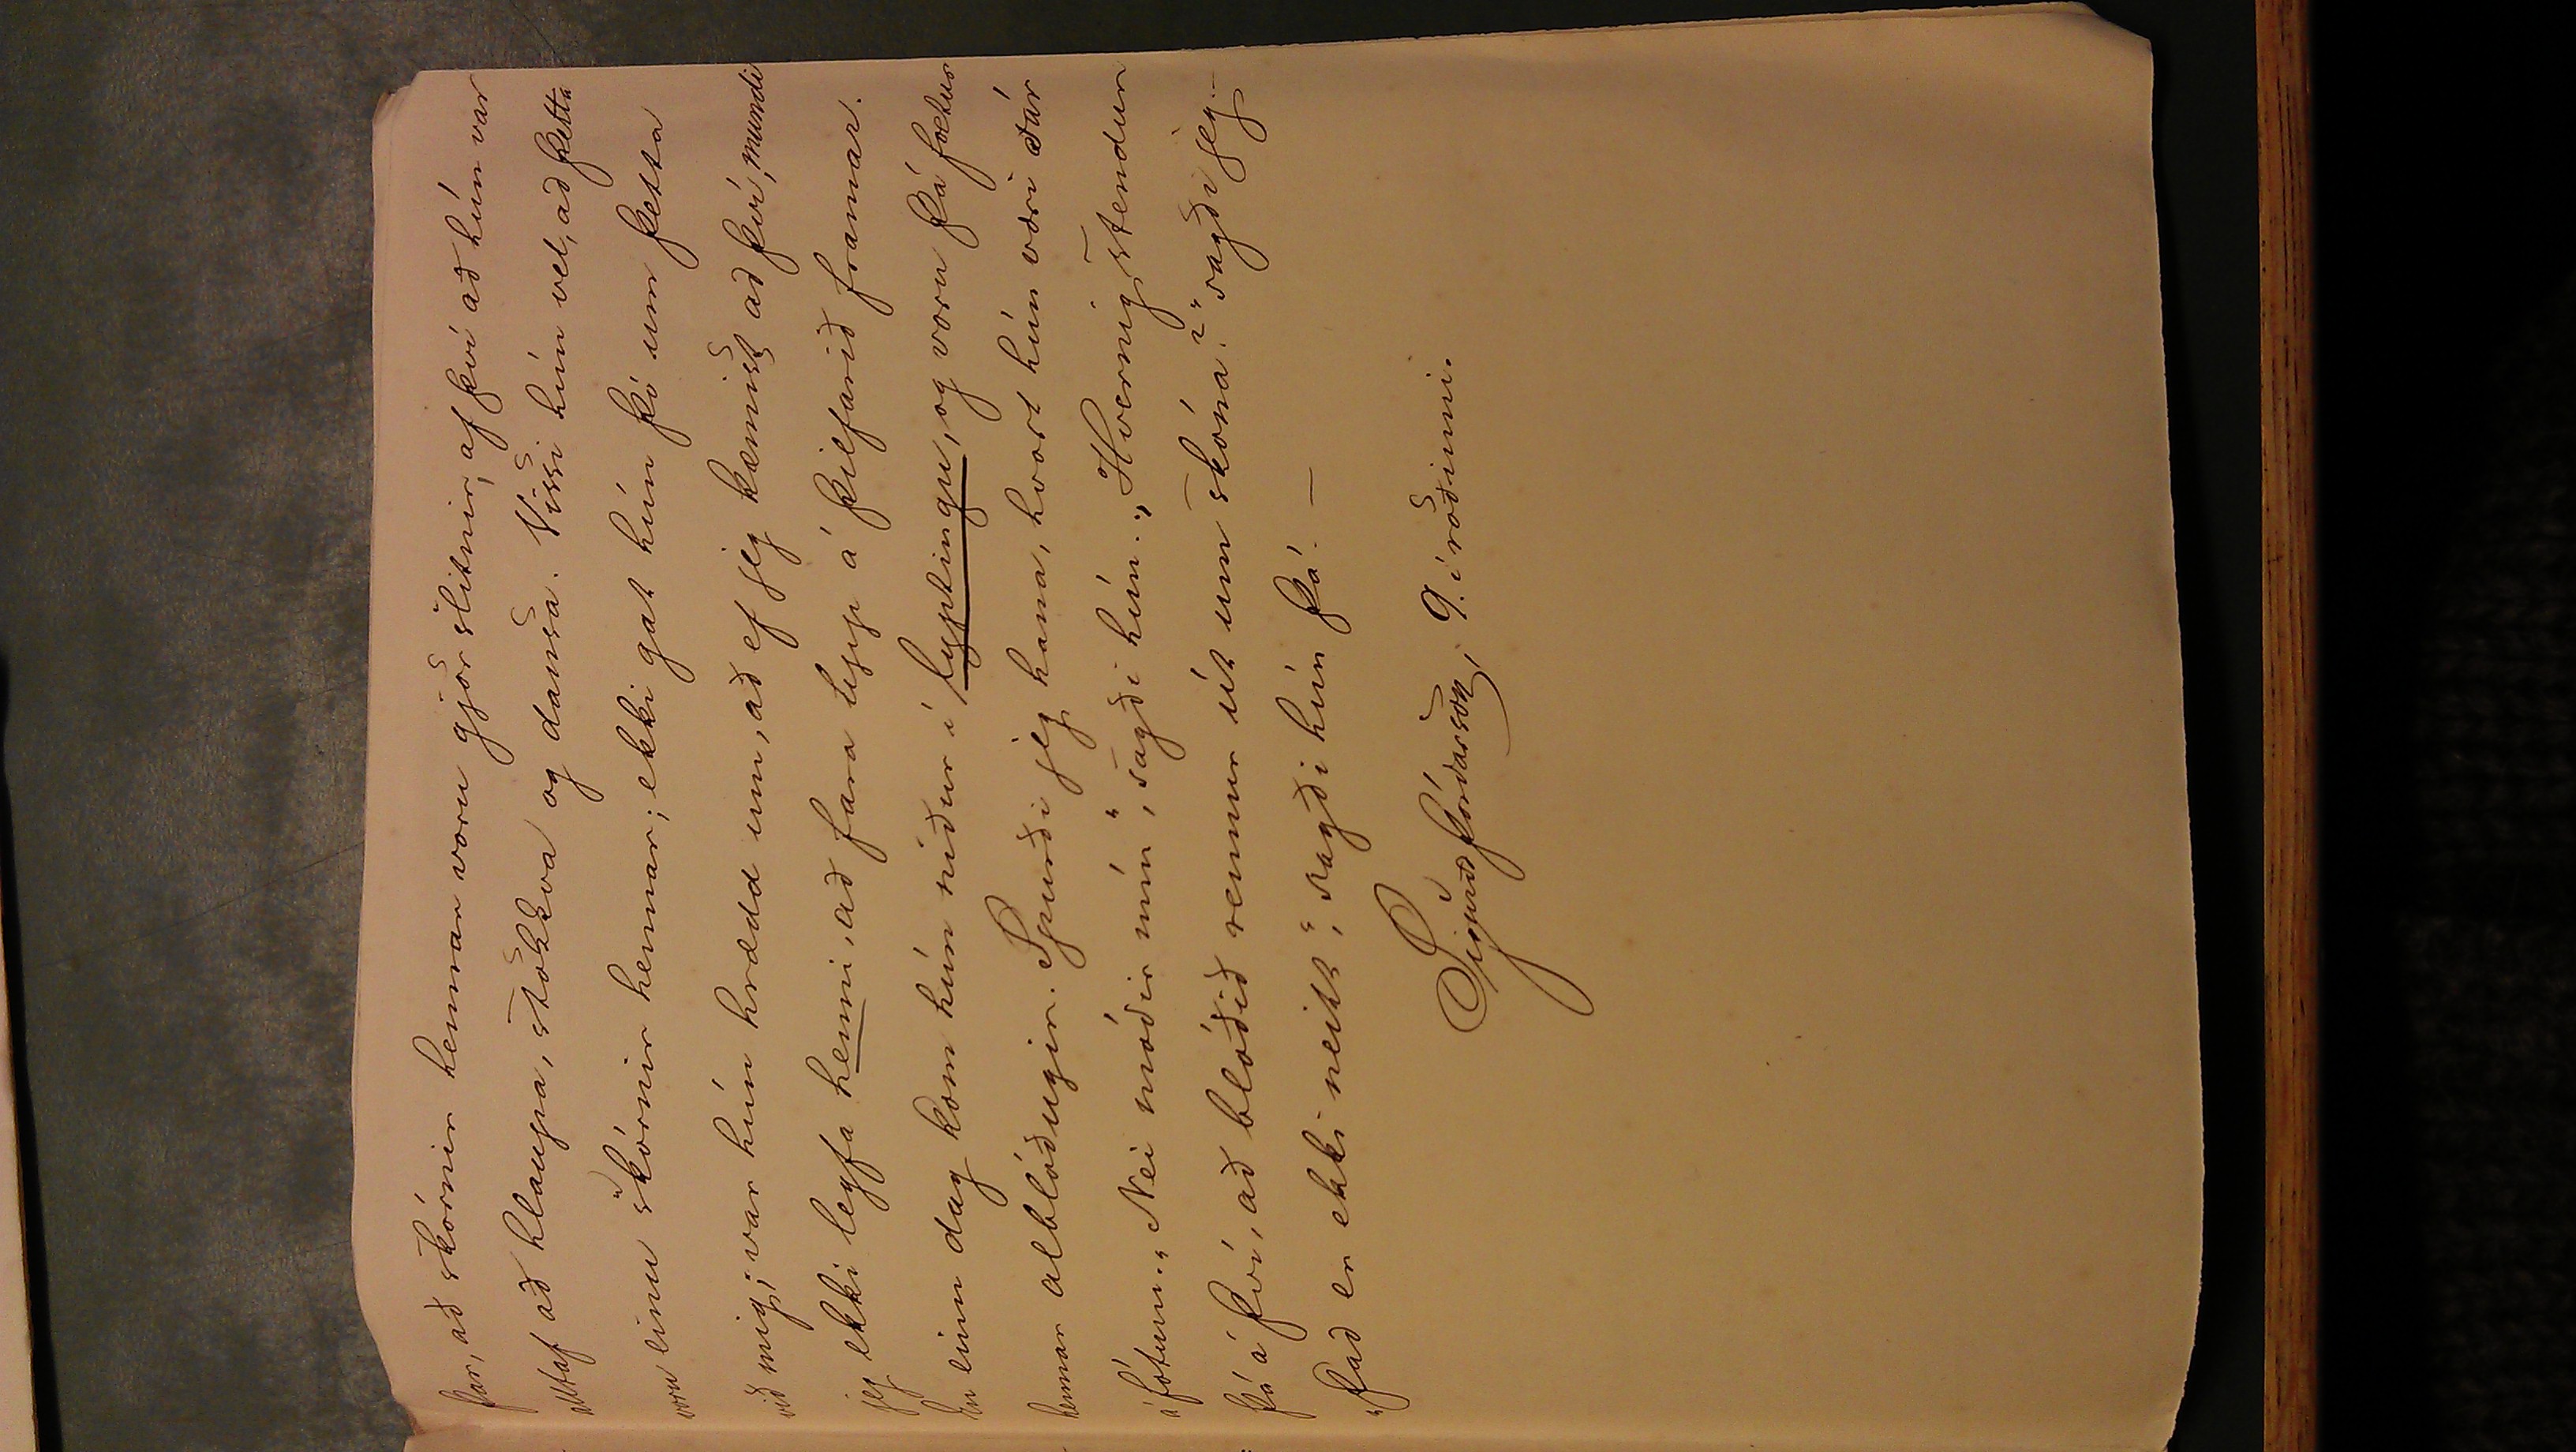 þar, að skórnir hennar voru gjörslitnir, af því að hún var
alltaf að hlaupa, stökkva og dansa. Vissi hún vel, að þetta
voru einu skórnir hennar; ekki gat hún þó um þetta
við mig; var hún hrædd um, að ef jeg kæmist að því, mundi
jeg ekki leyfa henni, að fara upp á þilfarið framar.
En einn dag kom hún niður í lyptingu, og voru þá fætur
hennar alblóðugir. Spurði jeg hana, hvort hún væri sár
á fótum. „Nei móðir mín“, sagði hún. „Hvernig stendur
þá á því, að blóðið rennur út um skóna?“ sagði jeg. –
„Það er ekki neitt“, sagði hún þá. –
Sigurð Þórðarson, 9. í röðinni.